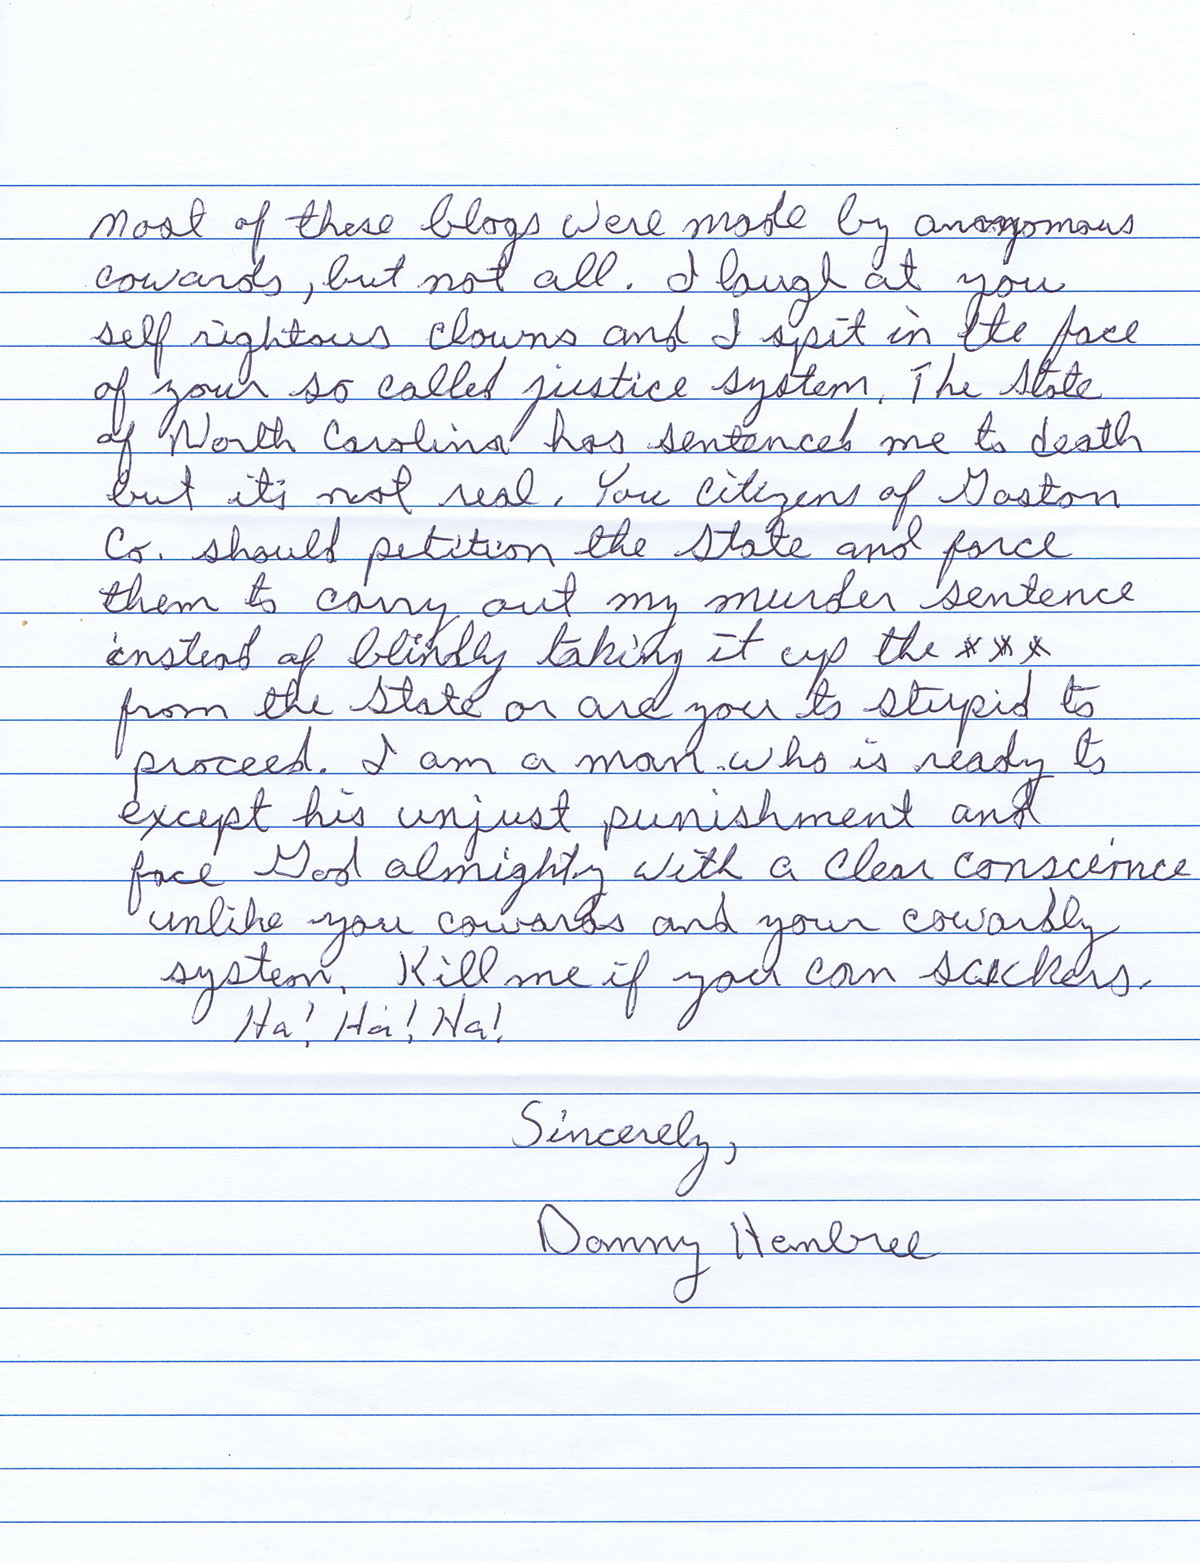 Most of these blogs were made by anonymous
cowards, but not all. I laugh at you
self rightous clowns and I spit in the face
of your so called justice system. The State
of North Carolina has sentenced me to death
but it's not real. You citizens of Gaston
Co. should petition the State and force
them to carry out my murder sentence
instead of blindly taking it up the ***
from the State or are you to stupid to
proceed. I am a man who is ready to
except his unjust punishment and
face God almighty with a clear conscience
unlike you cowards and your cowardly
system. Kill me if you can suckers.
Ha! Ha! Ha!
Sincerely,
Danny Hembree